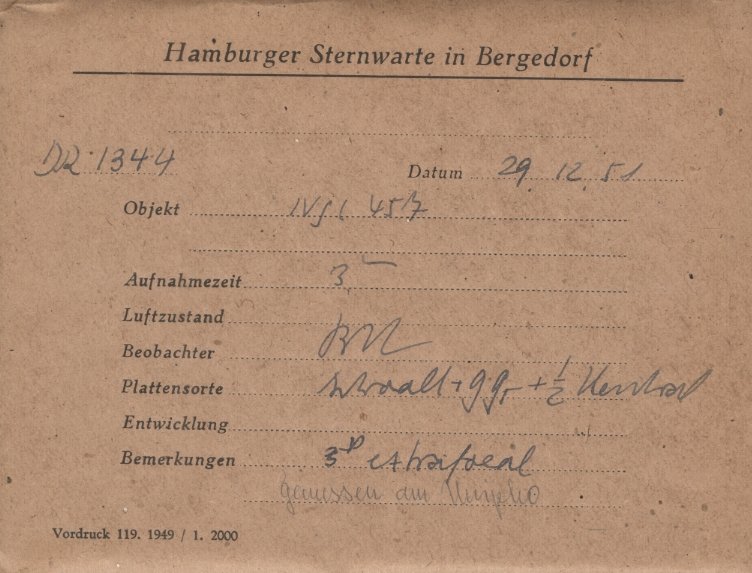 Hamburger Sternwarte in Bergedorf
DR 1344 Datum 29. 12. 51
Objekt
Aufnahmezeit 3
Luftzustand
Beobachter
Plattensorte + gg + ½
Entwicklung
Bemerkungen 3 extrafocal
gemessen am
Vordruck 119. 1949 / 1. 2000